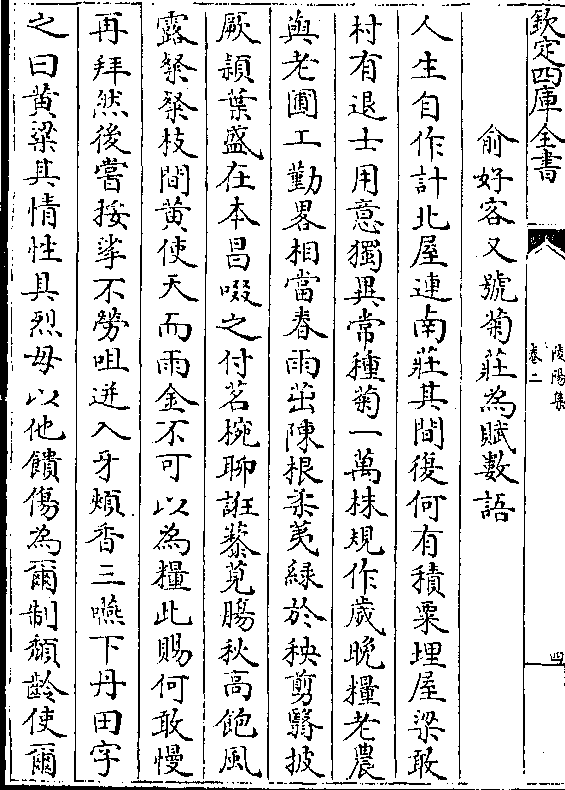 欽定四庫全書
陵陽集
卷二
四
俞好客又號菊莊為賦數語
人生自作計北屋連南莊其間復何有積粟埋屋梁敢
村有退士用意獨異常種菊一萬株規作歲晚糧老農
與老圃工勤畧相當春雨茁陳根柔荑緑於秧剪翳披
厥穎葉盛在本昌啜之付茗椀聊誑藜莧腸秋高飽風
露粲粲枝間黄使天而雨金不可以為糧此賜何敢慢
再拜然後嘗挼挲不勞咀迸入牙頰香三嚥下丹田字
之曰黄粱其情性具烈毋以他饋傷為爾制頽齡使爾